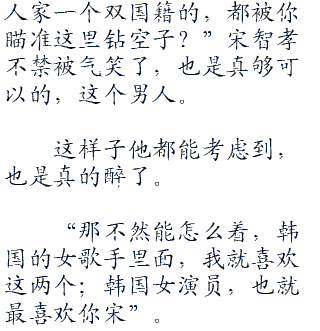 人家一个双国籍的，都被你
瞄准这里钻空子？”宋智孝
不禁被气笑了，也是真够可
以的，这个男人。
这样子他都能考虑到，
也是真的醉了。
“那不然能怎么着，韩
国的女歌手里面，我就喜欢
这两个；韩国女演员，也就
最喜欢你宋”。